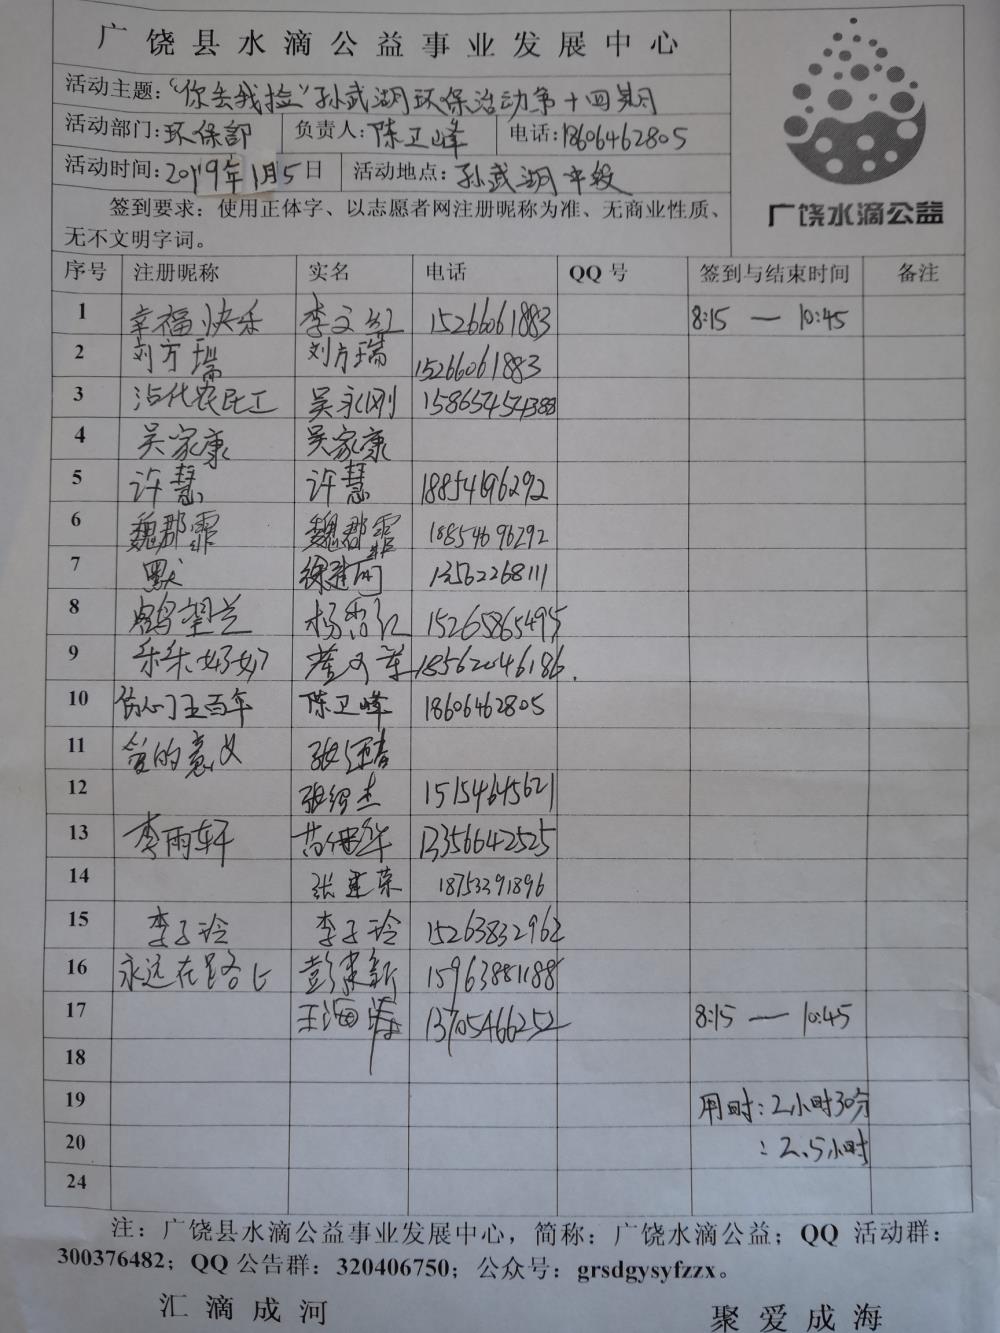 广饶县水滴公益事业发展中心
活动主题：“你丢我捡”孙武湖环保活动第十四期
活动部门：环保部 负责人：陈卫峰 电话：18606462805
活动时间：2019年1月5日 活动地点：孙武湖
签到要求：使用正体字、以志愿者网注册昵称为准、无商业性质、
无不文明字词。
广饶水滴公益
序号 注册昵称 实名 电话 QQ 号 签到与结束时间 备注
1 幸福快乐 李文红 15266061883 8:15 — 10:45
2 刘方瑞 刘方瑞 15266061883
3 沾化农民工 吴永刚 15865454388
4 吴家康 吴家康
5 许慧 许慧 18854696292
6 魏郡霏 魏郡霏 18854696292
7 默 徐建 13562268111
8 鹤望兰 杨 15265865495
9 乐乐好好 18562046186
10 五百年 陈卫峰 18606462805
11 爱的意义 张
12 张绍杰 15154645621
13 李雨轩 13356642525
14 张建荣 18753391896
15 李子玲 李子玲 15263832962
16 永远在路上 彭建新 15963881188
17 王海涛 13705466252 8:15 — 10:45
18
19 用时：2小时30分
20 ：2.5小时
24
注：广饶县水滴公益事业发展中心，简称：广饶水滴公益；QQ 活动群：
300376482；QQ 公告群：320406750；公众号：grsdgysyfzzx。
汇滴成河 聚爱成海